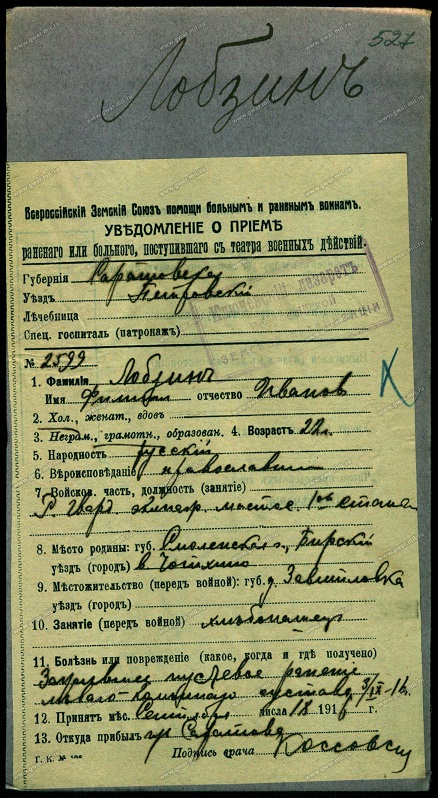 527
Лобзинъ
Всероссійскій Земскій Союзъ помощи больнымъ и раненымъ воинамъ.
УВѢДОМЛЕНІЕ О ПРІЕМѢ
раненаго или больного, поступившаго съ театра военныхъ дѣйствій.
Губернія Саратовская
Уѣздъ Петровскій
Лѣчебница
лазаретъ
Спец. госпиталь (патронажъ)
№ 2599
1. Фамилія Лобзинъ
Имя Филиппъ отчество Ивановъ
2. Хол., женат., вдовъ
3. Неграм., грамотн., образован. 4. Возрастъ 22 г.
5. Народность русскій
6. Вѣроисповѣданіе православный
7. Войсков. часть, должность (занятіе)
8. Мѣсто родины: губ. Смоленская,
уѣздъ (городъ)
9. Мѣстожительство (передъ войной): губ. д.
уѣздъ (городъ)
10. Занятіе (передъ войной) хлѣбопашецъ
11. Болѣзнь или поврежденіе (какое, когда и гдѣ получено)
пулевое раненіе
лѣваго сустава 3/IX-16 г.
12. Принятъ мѣс. Сентября числа 18 1916 г.
13. Откуда прибылъ гр Саратова
Подпись врача Коссовскій
Г. К. №